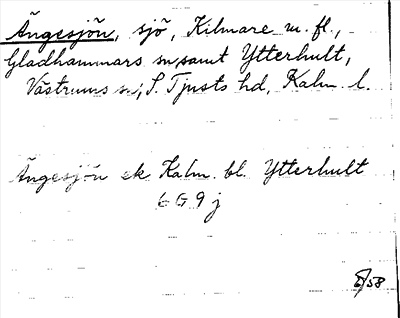 Ängesjön, sjö, Kilmare m. fl.,
Gladhammars sn, samt Ytterhult,
Västrums sn; S. Tjusts hd, Kalm. l.
Ängesjön ek Kalm. bl. Ytterhult
6 G 9 j
/58